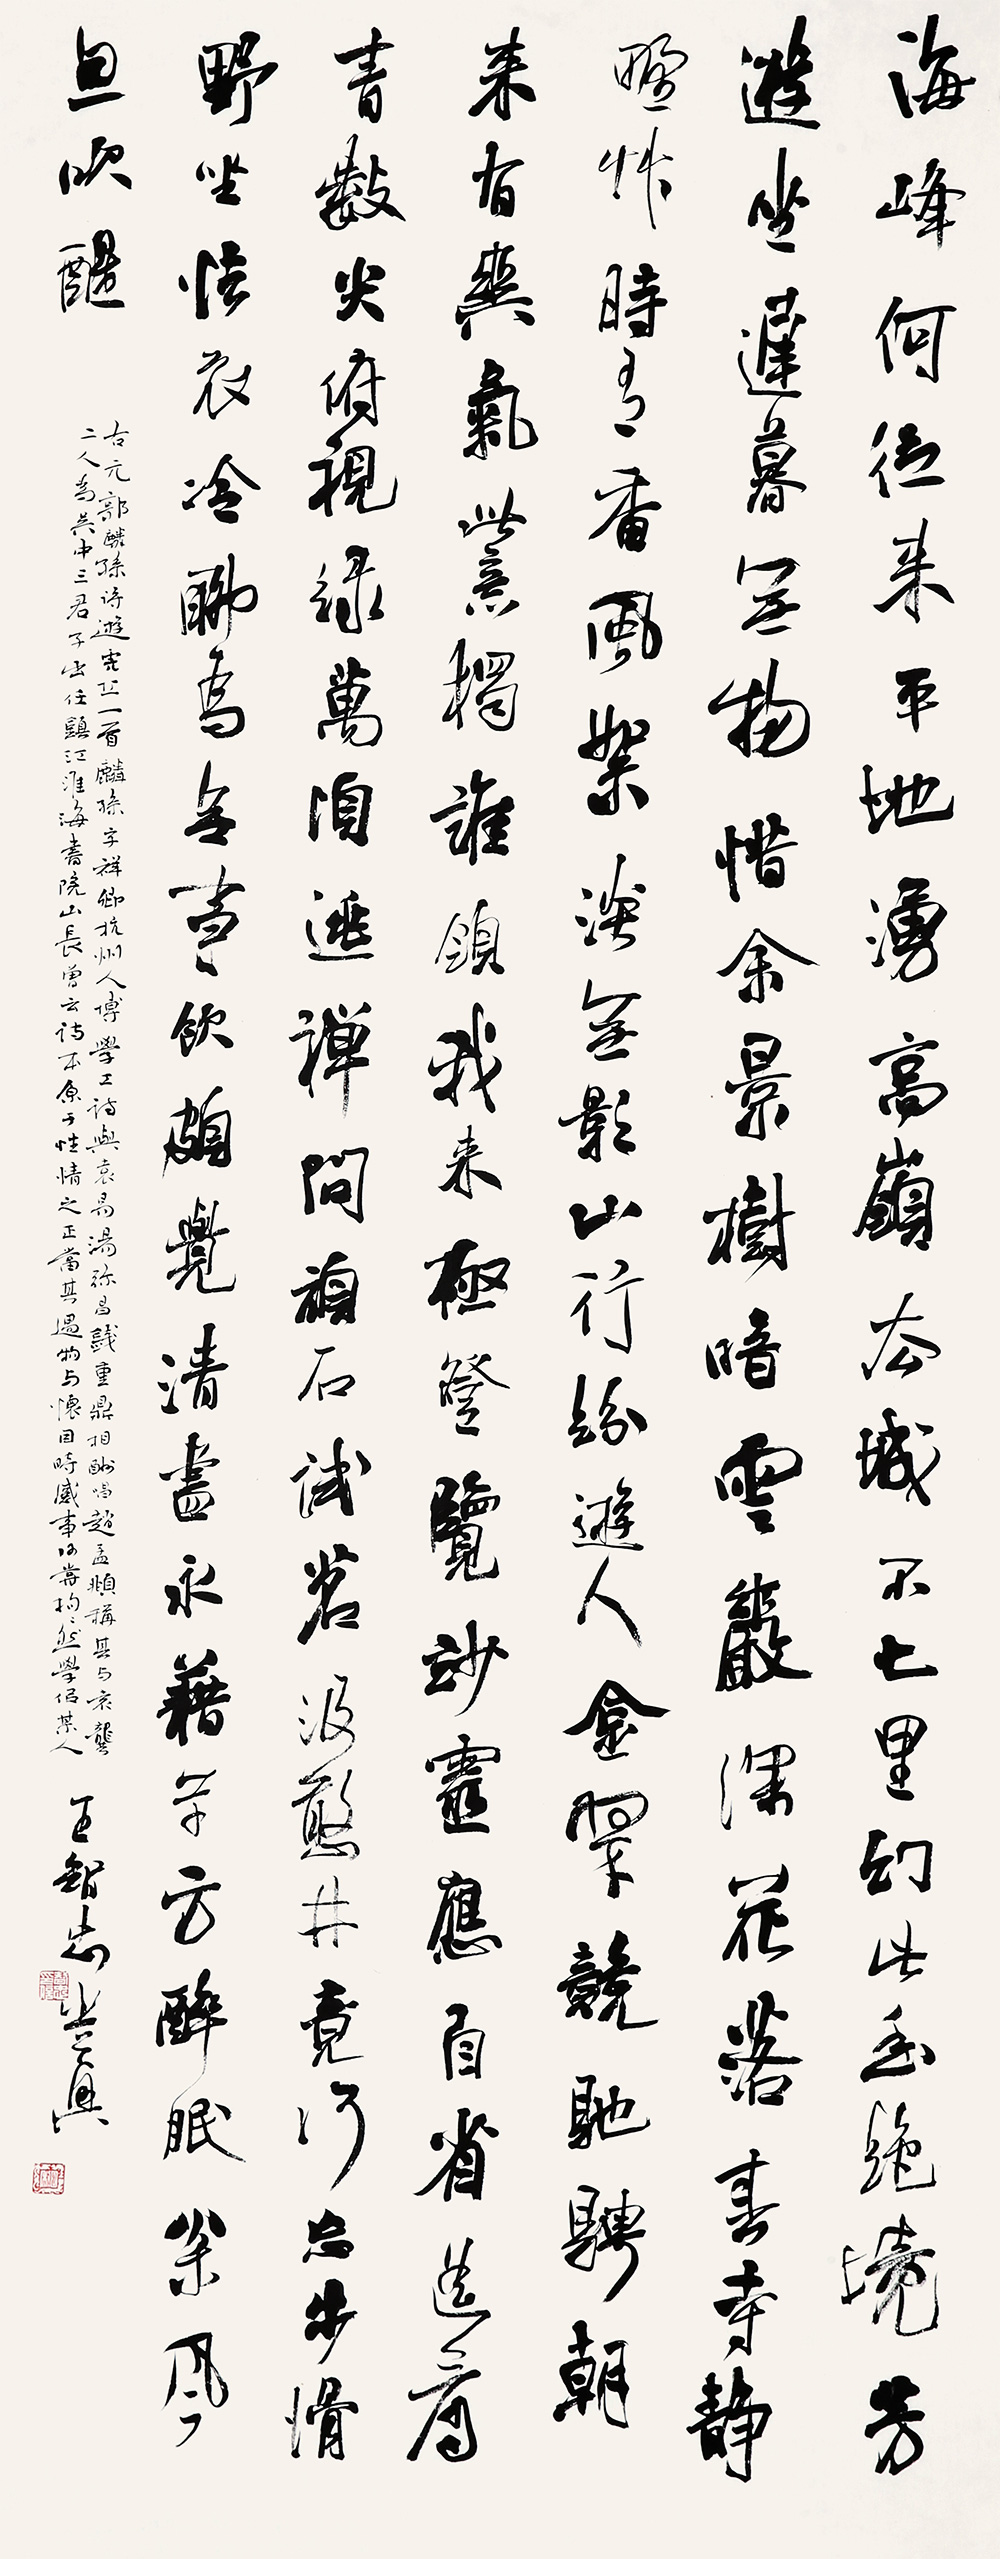 海峰何從来平地湧高嶺去城不七里幻此幽絶境芳
遊坐遲暮無物惜余景樹暗雲巖深花落春寺靜
野草時有香風絮淡無影山行紛遊人金翠競馳騁朝
来有爽氣此意獨誰領我来極登覽妙靈應自省遥看
青數尖俯視緑萬頃逃禪問頑石試茗汲憨井竟行忘步滑
野坐怯衣冷聊為無事飲頗覺清晝永藉草方醉眠松風
忽吹醒
右元郭麟孫詩遊虎丘一首麟孫字祥卿杭州人博學工詩與袁易湯弥昌錢重鼎相酬唱趙孟頫稱其与袁龔
二人為吳中三君子出任鎮江淮海書院山長曾云詩本原于性情之正當其遇物与懷因時感事何嘗拘拘然學侣某人
王智忠